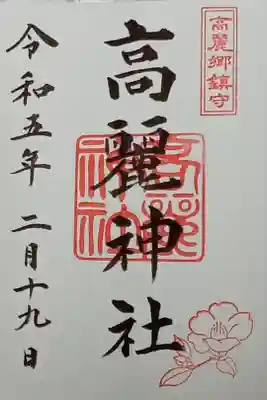 高麗郷鎮守
高麗神社
令和五年 二月十九日